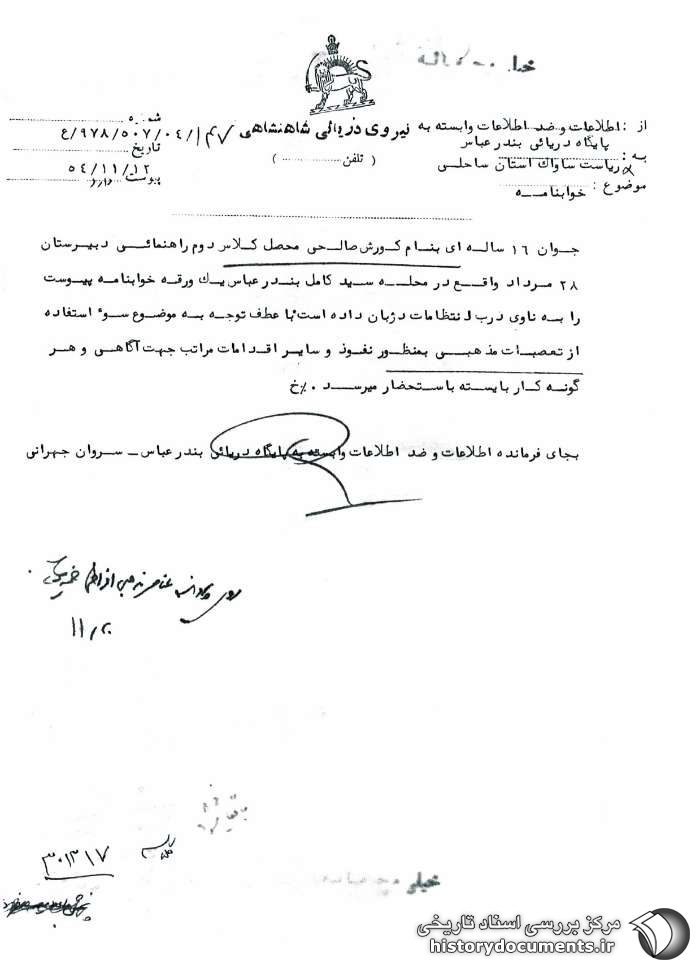 از : اطلاعات و ضد اطلاعات وابسته به نیروی دریائی شاهنشاهی
پایگاه دریائی بندرعباس
به : ریاست ساواک استان ساحلی
موضوع : خوابنامه
( تلفن .............. )
شماره ۹۷۸/۵۰۷/۰۴/ع
تاریخ ۵۴/۱۱/۱۲
پیوست دارد
جوان ۱۶ ساله ای بنام کورش صالحی محصل کلاس دوم راهنمائی دبیرستان
۲۸ مرداد واقع در محله سید کامل بندرعباس یک ورقه خوابنامه پیوست
را به ناوی درب انتظامات دژبان داده است با عطف توجه به موضوع سوء استفاده
از تعصبات مذهبی بمنظور نفوذ و سایر اقدامات مراتب جهت آگاهی و هر
گونه کار بایسته باستحضار میرسد ۰٪خ
بجای فرمانده اطلاعات و ضد اطلاعات وابسته به پایگاه دریائی بندرعباس – سروان جهرانی
۳۰۱۳۱۷
خیلی
مرکز بررسی اسناد تاریخی
historydocuments.ir